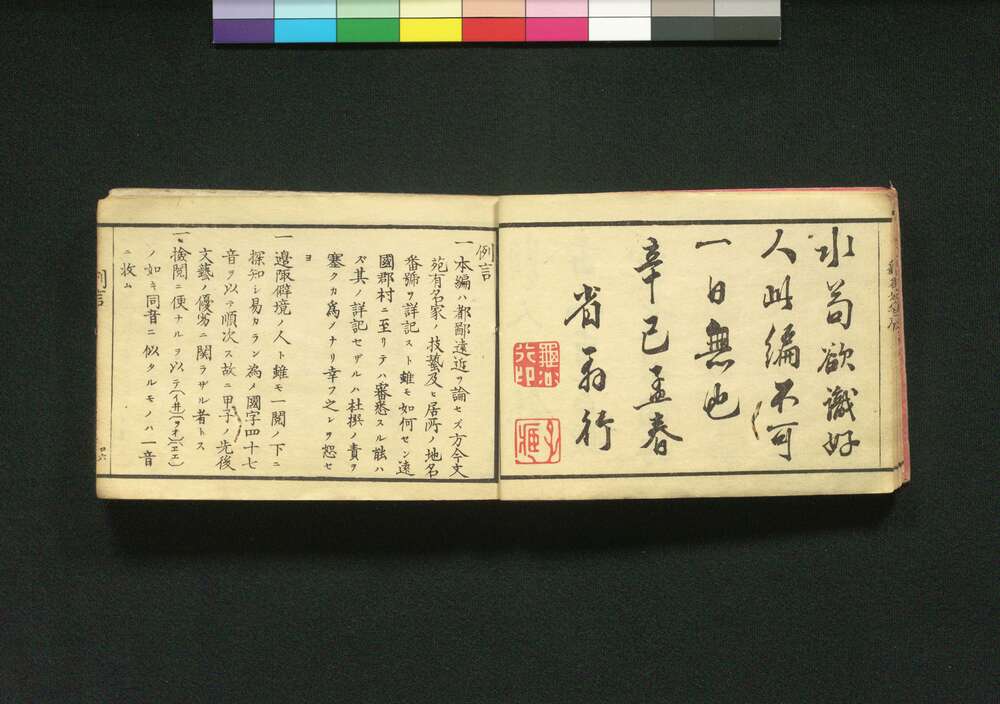 水苟欲識好
人此編不可
一日無也
辛巳孟春
省翁行
例言
一本編ハ都鄙遠近ヲ論セズ方今文
苑有名家ノ技藝及ヒ居所ノ地名
番號ヲ詳記スト雖モ如何セン遠
國郡村ニ至リテハ審悉スル能ハ
ズ其ノ詳記セザルハ杜撰ノ責ヲ
塞クカ為メナリ幸フ之レヲ恕セ
ヨ
一邊陬僻境ノ人ト雖モ一閲ノ下ニ
探知シ易カラン為メ國字四十七
音ヲ以テ順次ス故ニ甲子ノ先後
文藝ノ優劣ニ関ラザル者トス
一檢閲ニ便ナルヲ以テ(イ井)(ヲオ)(エヱ)
ノ如キ同音ニ似タルモノハ一音
ニ收ム
例言
四六